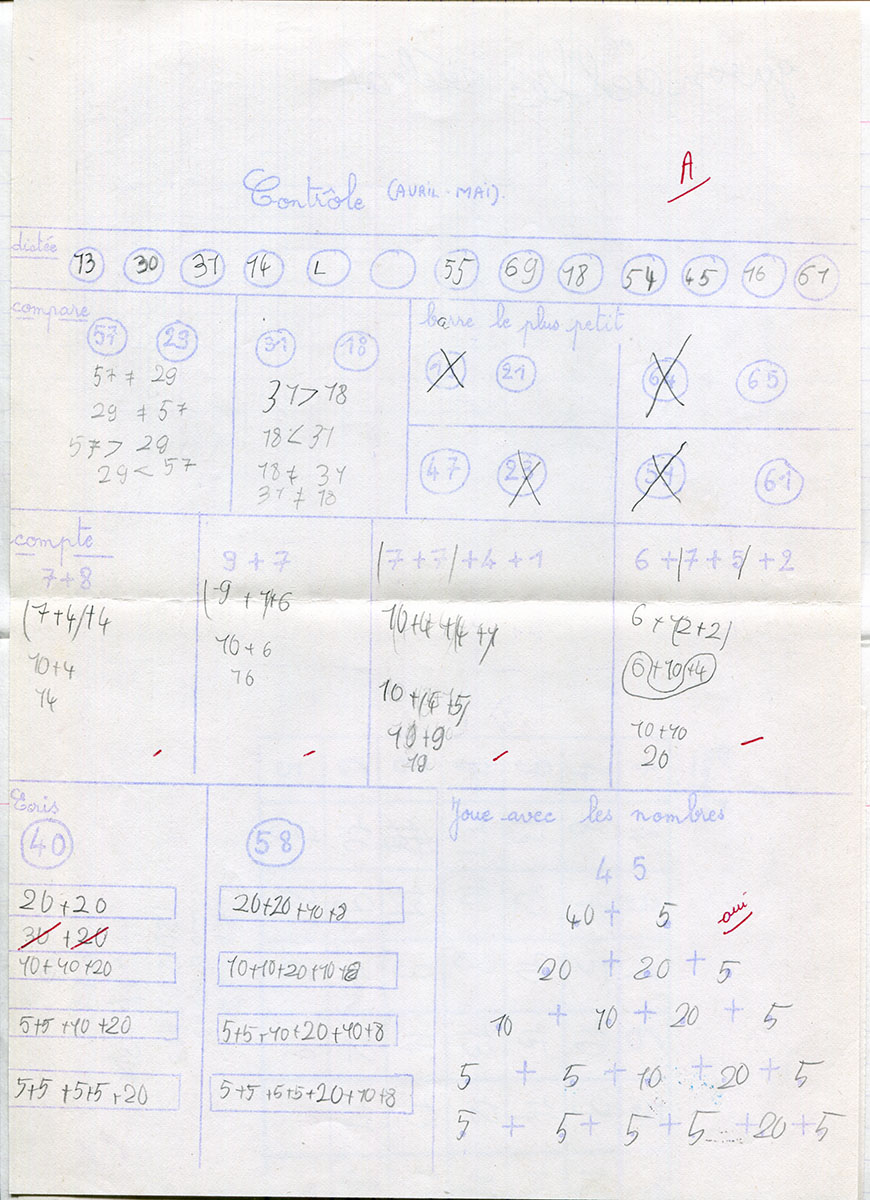 Contrôle (AVRIL-MAI).
A
dictée
13 30 31 14 L 55 69 18 54 45 16 61
compare
57 29
57 ≠ 29
29 ≠ 57
57 > 29
29 < 57
31 18
31 > 18
18 < 31
18 ≠ 31
31 ≠ 18
barre le plus petit
21
64 65
47 23
51 61
compte
7+8
(7+4)+4
10+4
14
9+7
(9+1)+6
10+6
16
(7+7)+4+1
10+(4+5)
10+9
19
6+(7+5)+2
6+10+4
10+10
20
Ecris
40
20+20
30+20
10+10+20
5+5+10+20
5+5+5+5+20
58
20+20+10+8
10+10+20+10+8
5+5+10+20+10+8
5+5+5+5+20+10+8
Joue avec les nombres
45
40 + 5
oui
20 + 20 + 5
10 + 10 + 20 + 5
5 + 5 + 10 + 20 + 5
5 + 5 + 5 + 5 + 20 + 5